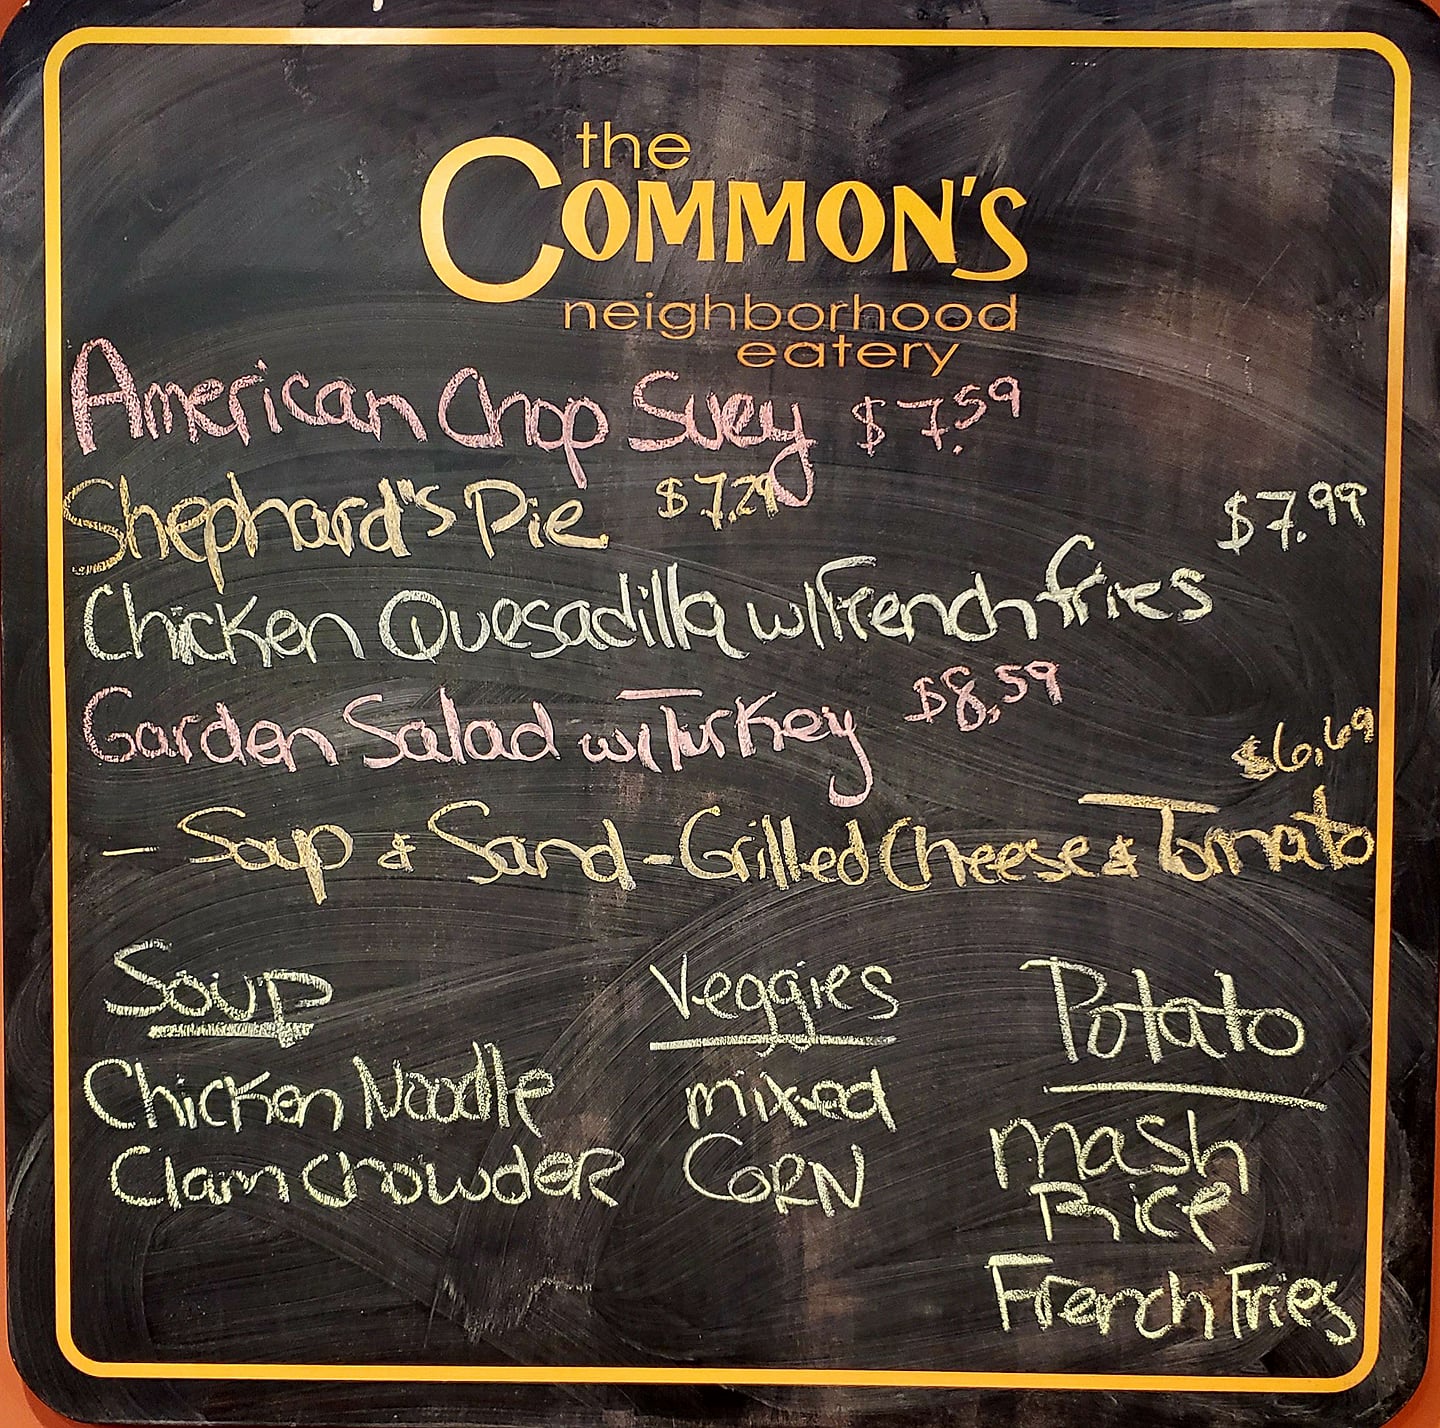 the
COMMON'S
neighborhood
eatery
American Chop Suey $7.59
Shephard's Pie $7.29
$7.99
Chicken Quesadilla w/French fries
Garden Salad w/Turkey $8,59
$6,69
- Soup & Sand - Grilled Cheese & Tomato
Soup
Chicken Noodle
Clam Chowder
Veggies
mixed
CORN
Potato
mash
Rice
French Fries